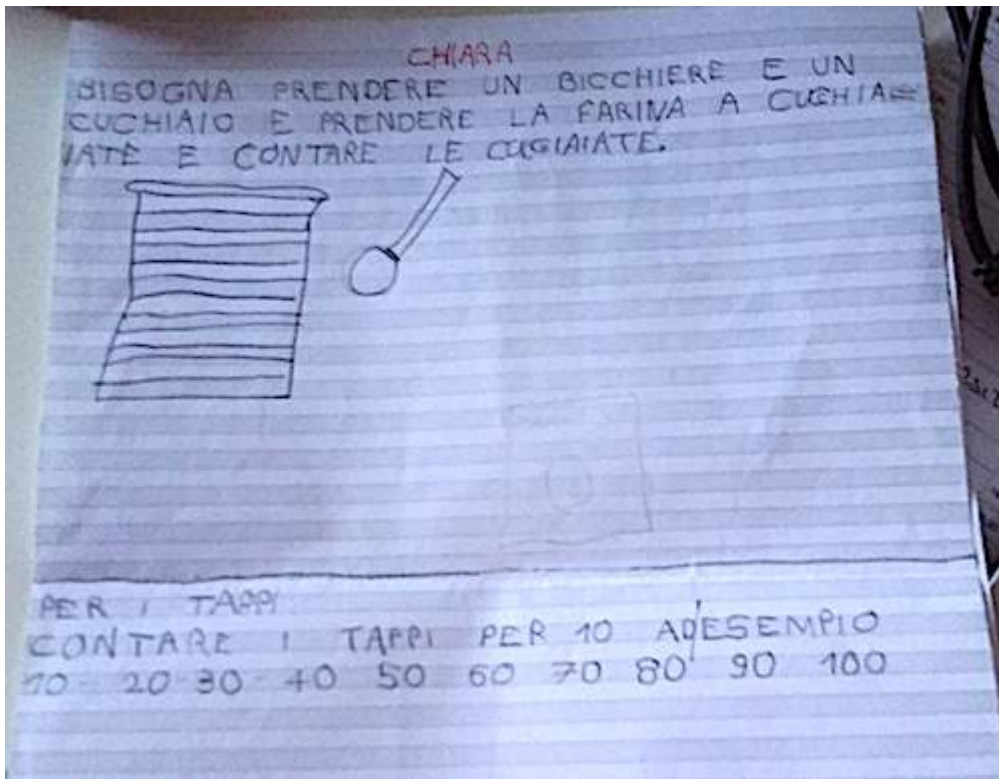 CHIARA
BISOGNA PRENDERE UN BICCHIERE E UN
CUCHIAIO E PRENDERE LA FARINA A CUCHIA=
IATE E CONTARE LE CUGIAIATE.
PER I TAPPI
CONTARE I TAPPI PER 10 AD/ESEMPIO
10 20 30 40 50 60 70 80 90 100